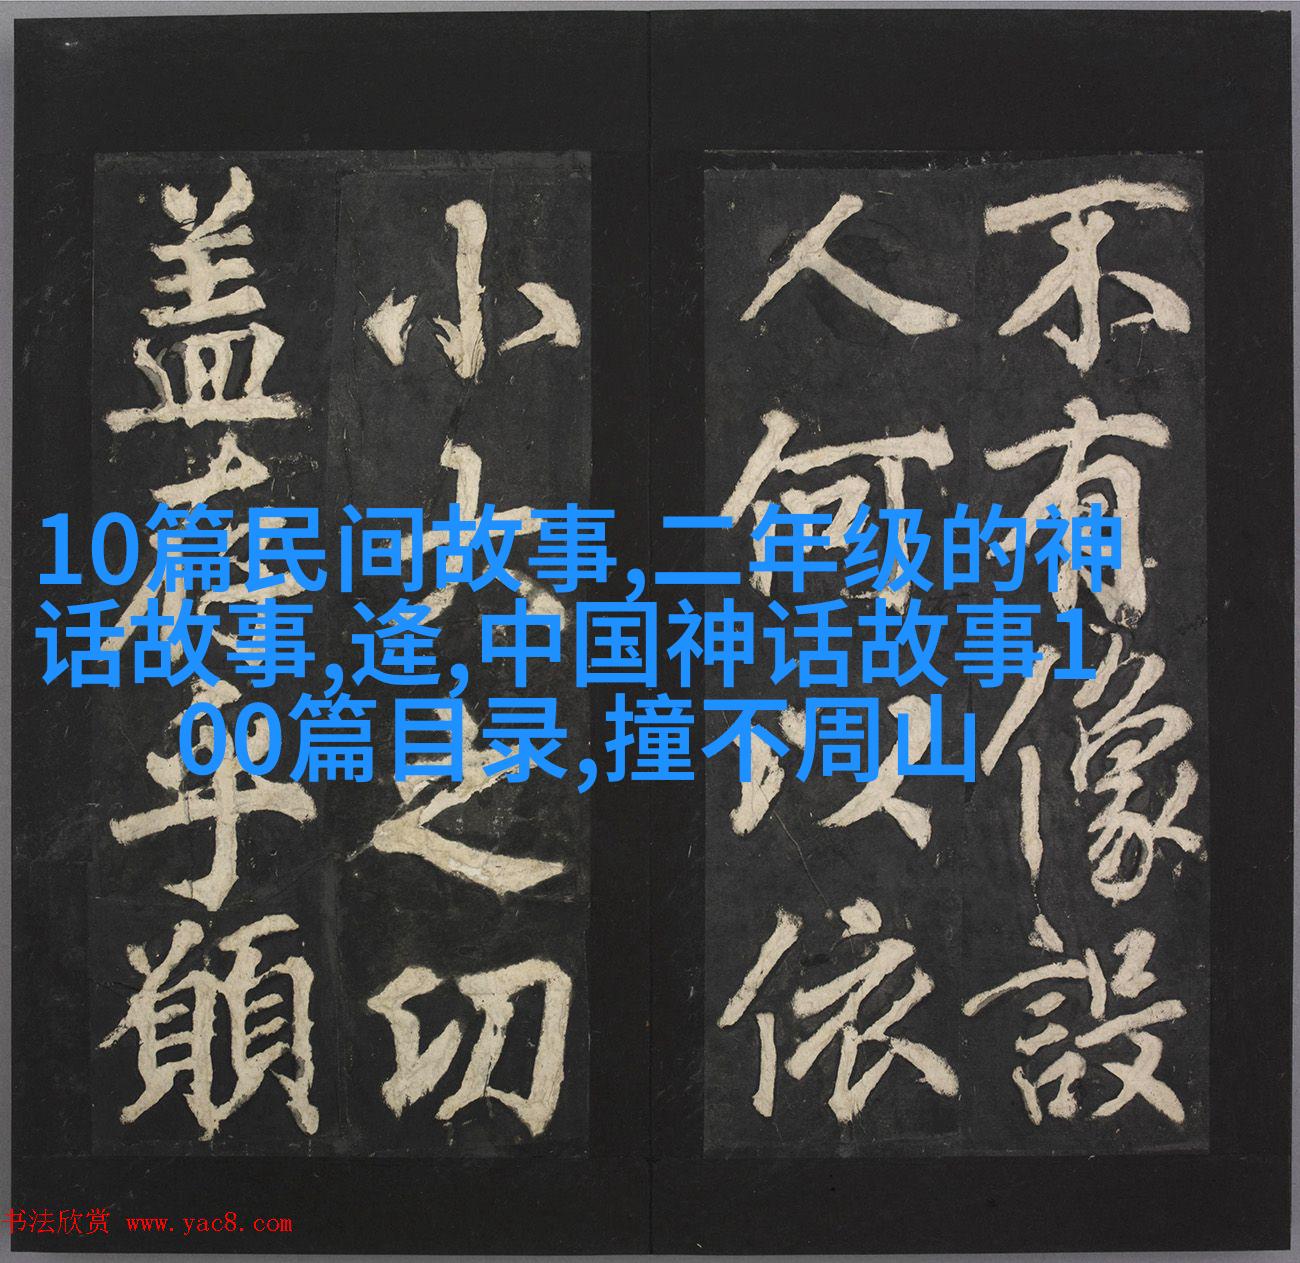 不有像設
人何以依
小大之切
盖乎願
10篇民间故事,二年级的神
话故事,逄,中国神话故事1
00篇目录,撞不周山
书法欣赏 www.yac8.com